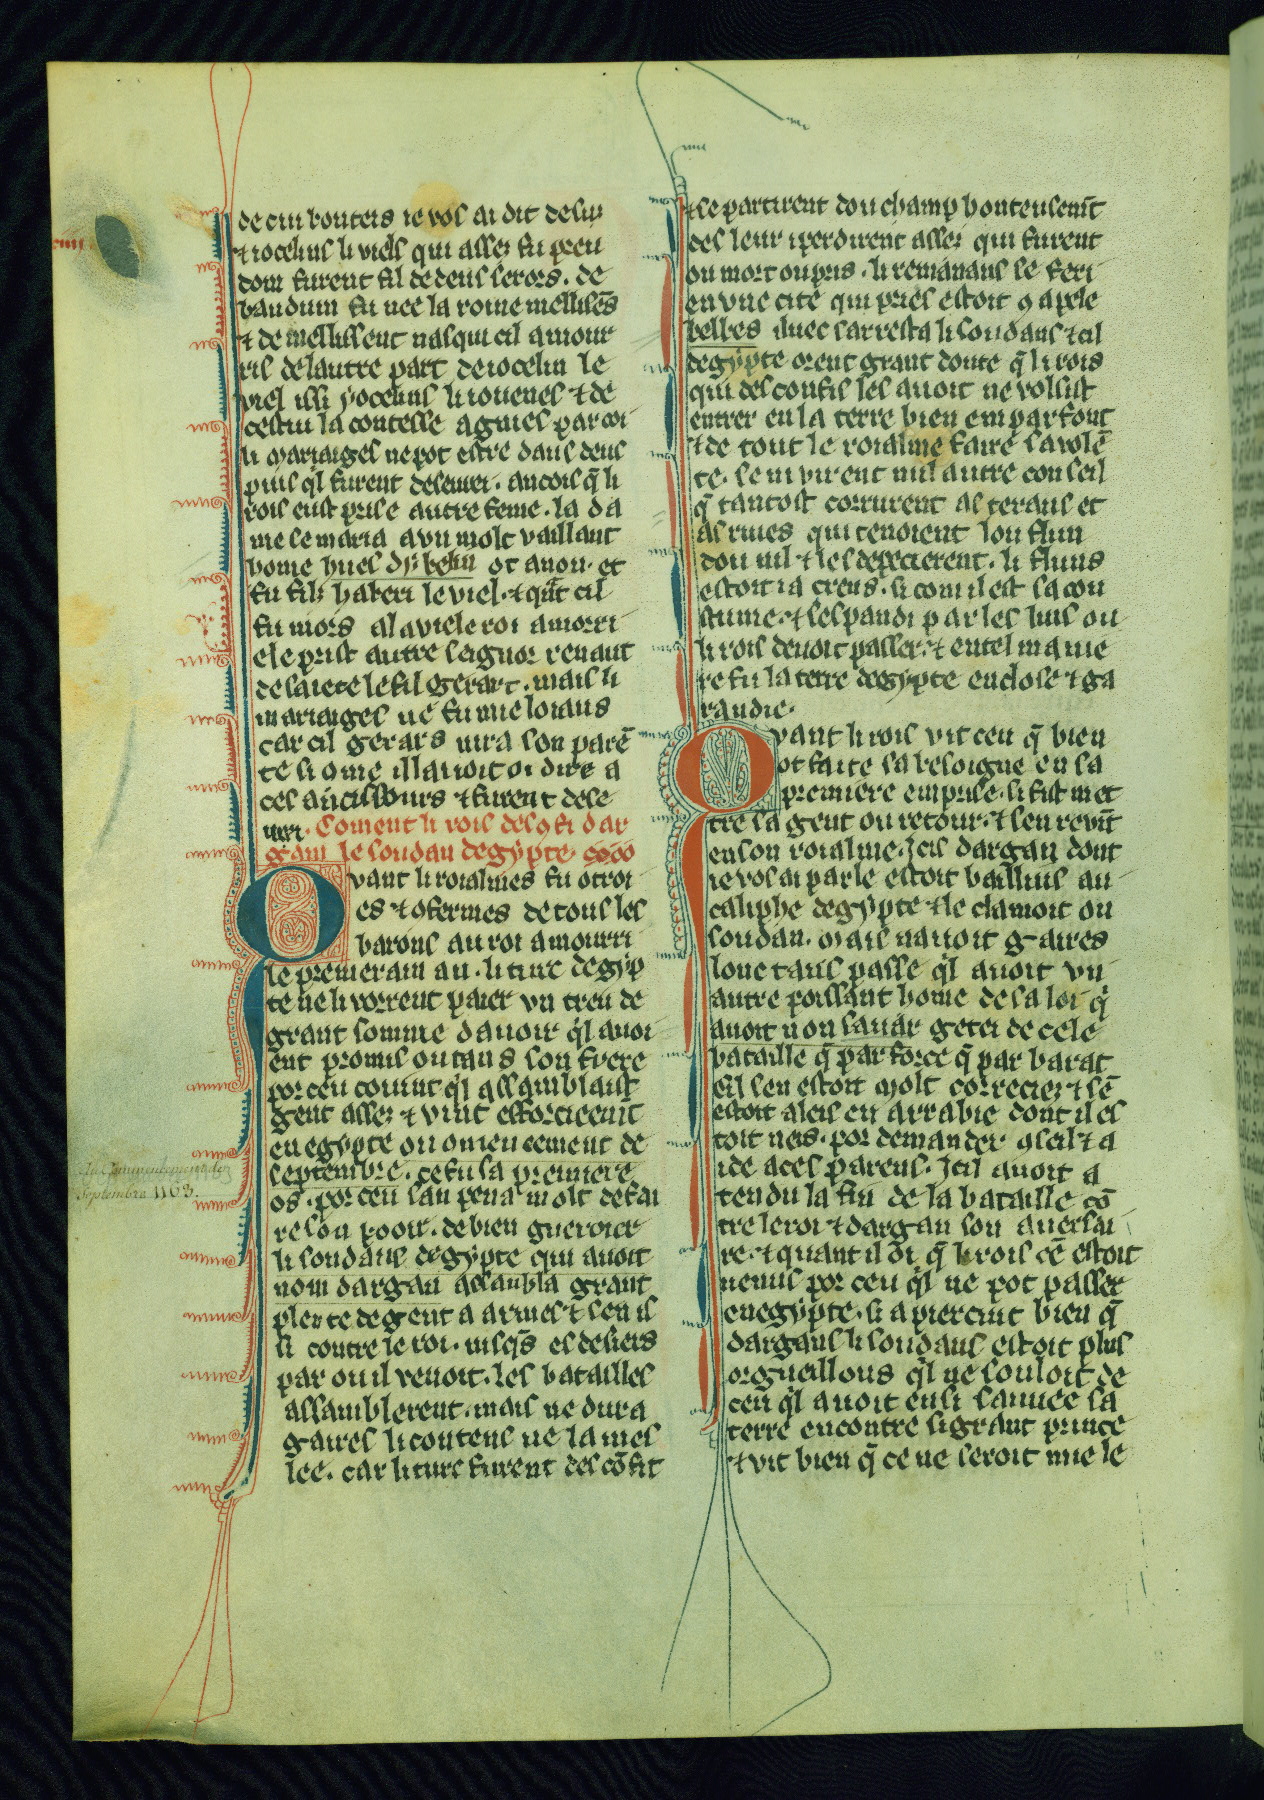 de cui bouteis ie vos ai dit desus
⁊ iocelins li viels qui assez fu preu
dom furent fil de deus serors. de
bauduin fu nee la roine mellisēs
⁊ de mellissent nasqui cil amour
ris de lautre part de iocelin le
viel issi yocelins li iouenes ⁊ de
cestui la contesse agnies par coi
li mariaiges ne pot estre dans deus
puis ql furent deseiurei. ancois q̄ li
rois eust prise autre feme. la da
me se maria a vn molt vaillant
home hues dybelin ot a non. et
fu filz baberi le viel. ⁊ qāt cil
fu mors al a vie le roi amorri
ele prist autre seignor renaut
de saiete le fil gerart. mais li
mariaiges ne fu mie loiaus
car cil gerars iura son parē
te si 9me il lauoit oi dire a
ces ancissours ⁊ furent dese
urei. Coment li rois des9fi dar
gam le soudan degypte.
Quant li roialmes fu otroi
es ⁊ 9fermes de tous les
barons au roi amourri
le premerain an. li turc degyp
te ne li vorrent paier vn treu de
grant somme dauoir ql auoi
ent promis ou tans son frere
por ceu couint ql assamblaist
gent assez ⁊ vint efforcieemt̄
en egypte ou 9mencement de
septembre. ce fu sa premiere
os. por ceu san pena molt de fai
re son pooir. de bien gueroier
li soudans degypte qui auoit
nom dargan assanbla grant
plente de gent a armes ⁊ sen is
si contre le roi. iusqs es desiers
par ou il venoit. les batailles
assamblerent. mais ne dura
gaires li contens ne la mes
lee. car li turc furent des cōfit
Au Commencement de
Septembre 1163.
⁊ se partirent dou champ honteusemt̄
des leur i perdirent assez qui furent
ou mort ou pris. li remanans se feri
en vne cite qui pries estoit 9 apele
belbes iluec sarresta li soudans ⁊ cil
degypte orent grant doute q̄ li rois
qui desconfis les auoit ne volsist
entrer en la terre bien em parfont
⁊ de tout le roialme faire sa volē
te. se ni virent nul autre conseil
q̄ tantost corrurent as terans et
as riues qui tenoient lou flun
dou nil ⁊ les depecierent. li fluns
estoit ia creus. si com il est sa cou
stume. ⁊ sespandi par les huis ou
li rois deuoit passer. ⁊ en tel manie
re fu la terre degypte enclose ⁊ ga
randie.
Quant li rois vit ceu q̄ bien
ot faite sa besoigne en sa
premiere emprise. si fist met
tre sa gent ou retour. ⁊ sen revīt
en son roialme. Icis dargan dont
ie vos ai parle estoit baillius au
caliphe degypte ⁊ le clamoit on
soudan. mais nauoit gaires
lonc tans passe ql auoit vn
autre poissant home de sa loi q̄
auoit non sauar getei de cele
bataille q̄ par force q̄ par barat
Cil sen estoit molt correciez ⁊ sē
estoit aleis en arrabie dont il es
toit neis. por demander 9seil ⁊ a
ide a ces parens. Icil auoit a
tendu la fin de la bataille cō
tre le roi ⁊ dargan son auersai
re. ⁊ quant il oi q̄ li rois cē estoit
uenus por ceu ql ne pot passer
en egypte. si apiercut bien q̄
dargans li soudans estoit plus
orgueillous ql ne souloit de
ceu ql auoit ensi sauuee sa
terre encontre si grant prince
⁊ vit bien q̄ ce ne seroit mie le